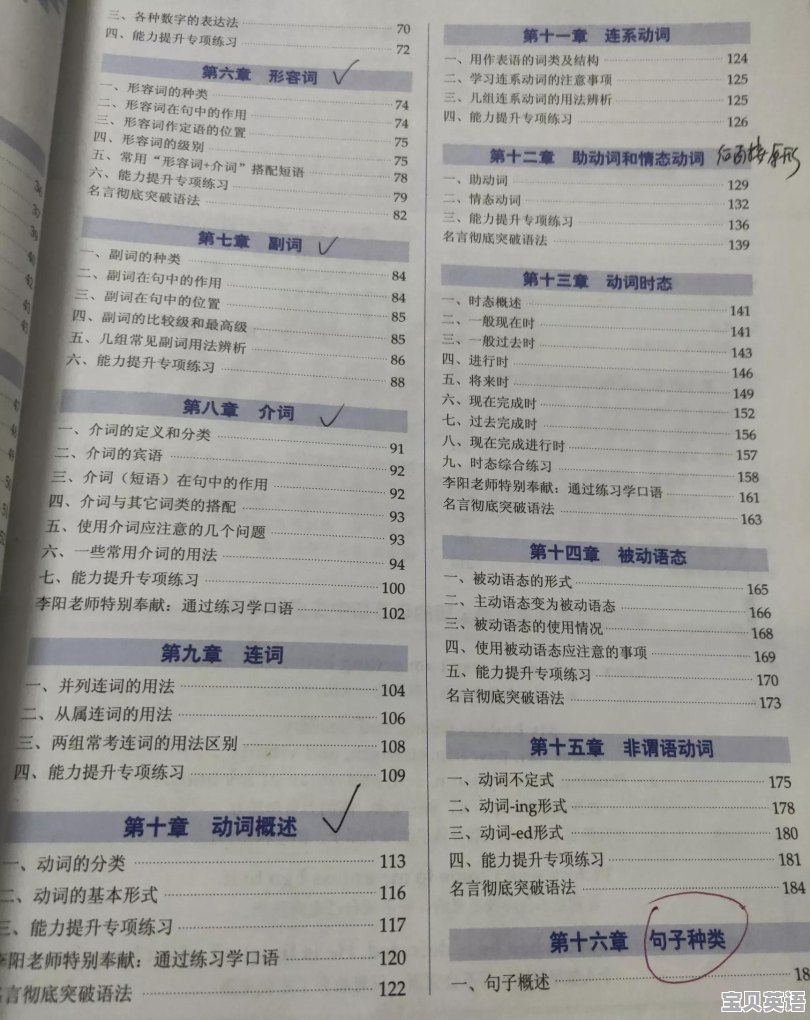 三、各种数字的表达法 70
四、能力提升专项练习 72
第六章 形容词
一、形容词的种类 74
二、形容词在句中的作用 74
三、形容词作定语的位置 75
四、形容词的级别 75
五、常用“形容词+介词”搭配短语 78
六、能力提升专项练习 79
名言彻底突破语法 82
第七章 副词
一、副词的种类 84
二、副词在句中的作用 84
三、副词在句中的位置 85
四、副词的比较级和最高级 85
五、几组常见副词用法辨析 86
六、能力提升专项练习 88
第八章 介词
一、介词的定义和分类 91
二、介词的宾语 92
三、介词（短语）在句中的作用 92
四、介词与其它词类的搭配 93
五、使用介词应注意的几个问题 93
六、一些常用介词的用法 94
七、能力提升专项练习 100
李阳老师特别奉献：通过练习学口语 102
第九章 连词
一、并列连词的用法 104
二、从属连词的用法 106
三、两组常考连词的用法区别 108
四、能力提升专项练习 109
第十章 动词概述
一、动词的分类 113
二、动词的基本形式 116
三、能力提升专项练习 117
李阳老师特别奉献：通过练习学口语 120
名言彻底突破语法 122
第十一章 连系动词
一、用作表语的词类及结构 124
二、学习连系动词的注意事项 125
三、几组连系动词的用法辨析 125
四、能力提升专项练习 126
第十二章 助动词和情态动词 后面接原形
一、助动词 129
二、情态动词 132
三、能力提升专项练习 136
名言彻底突破语法 139
第十三章 动词时态
一、时态概述 141
二、一般现在时 141
三、一般过去时 143
四、进行时 146
五、将来时 149
六、现在完成时 152
七、过去完成时 156
八、现在完成进行时 157
九、时态综合练习 158
李阳老师特别奉献：通过练习学口语 161
名言彻底突破语法 163
第十四章 被动语态
一、被动语态的形式 165
二、主动语态变为被动语态 166
三、被动语态的使用情况 168
四、使用被动语态应注意的事项 169
五、能力提升专项练习 170
名言彻底突破语法 173
第十五章 非谓语动词
一、动词不定式 175
二、动词-ing形式 178
三、动词-ed形式 180
四、能力提升专项练习 181
名言彻底突破语法 184
第十六章 句子种类
一、句子概述 18
宝贝英语